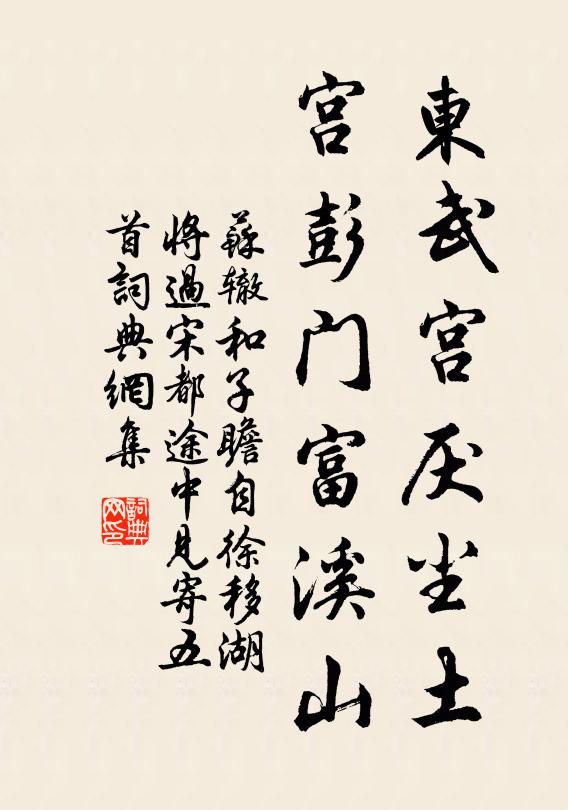 東武宫厌尘土
宫彭门富溪山
蘇辙和子瞻自徐移湖
将過宋都途中見寄五
首詞典網集
詞典
网印